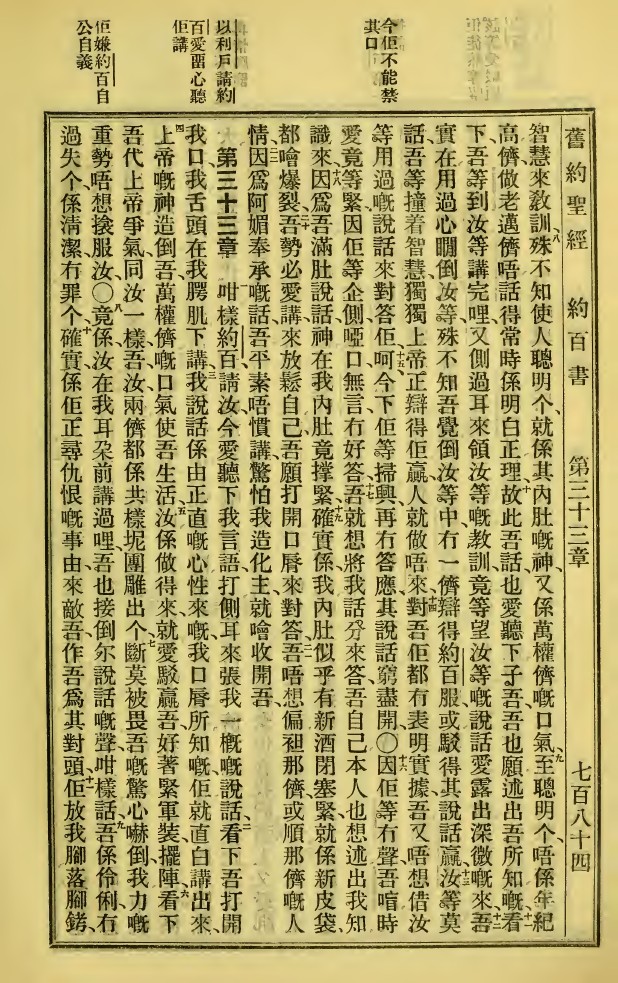 舊約聖經 約百書 第三十三章 七百八十四
智慧來教訓、八殊不知使人聰明个、就係其內肚嘅神、又係萬權儕嘅口氣、九至聰明个、唔係年紀
高儕、做老邁儕、唔話得常時係明白正理、十故此吾話、也愛聽下子吾、吾也願述出吾所知嘅、十一看
下、吾等到汝等講完哩、又側過耳來領汝等嘅教訓、竟等望汝等嘅說話、愛露出深微嘅來、十二吾
實在用過心瞯倒汝等、殊不知吾覺倒汝等中冇一儕辯得約百服、或駁得其說話贏、十三汝等莫
話、吾等撞着智慧、獨獨上帝正辯得佢贏、人就做唔來、十四對吾佢都冇表明實據、吾又唔想借汝
等用過嘅說話來對答佢、十五呵、今下佢等掃興、再冇答應、其說話窮盡開、〇十六因佢等冇聲、吾喧時
愛竟等緊、因佢等企側、啞口無言、冇好答、十七吾就想將我話分來答、吾自己本人也想述出我知
識來、十八因爲吾滿肚說話、神在我內肚竟撑緊、十九確實係我內肚似乎有新酒閉塞緊、就係新皮袋
都噲爆裂、二十吾勢必愛講來放鬆自己、吾願打開口脣來對答、二一吾唔想偏袒那儕、或順那儕嘅人
情、二二因爲阿媚奉承嘅話、吾平素唔慣講、驚怕我造化主、就噲收開吾、
第三十三章 一咁樣約百、請汝今愛聽下我言語、打側耳來張我一概嘅說話、二看下、吾打開
我口、我舌頭在我腭肌下講、三我說話係由正直嘅心性來嘅、我口脣所知嘅佢就直白講出來、
四上帝嘅神造倒吾、萬權儕嘅口氣使吾生活、五汝係做得來、就愛駁贏吾、好著緊軍裝擺陣、六看下
吾代上帝爭氣、同汝一樣、吾汝兩儕都係共樣坭團雕出个、七斷莫被畏吾嘅驚心嚇倒、我力嘅
重勢、唔想捦服汝、〇八竟係汝在我耳朶前講過哩、吾也接倒尔說話嘅聲、咁樣話、九吾係伶俐、冇
過失个、係清潔冇罪个、十確實係佢正尋仇恨嘅事由來敵吾、作吾爲其對頭、十一佢放我腳落腳銬、
今佢不能禁
其口
以利戶請約
百愛畱心聽
佢講
佢嫌約百自
公自義